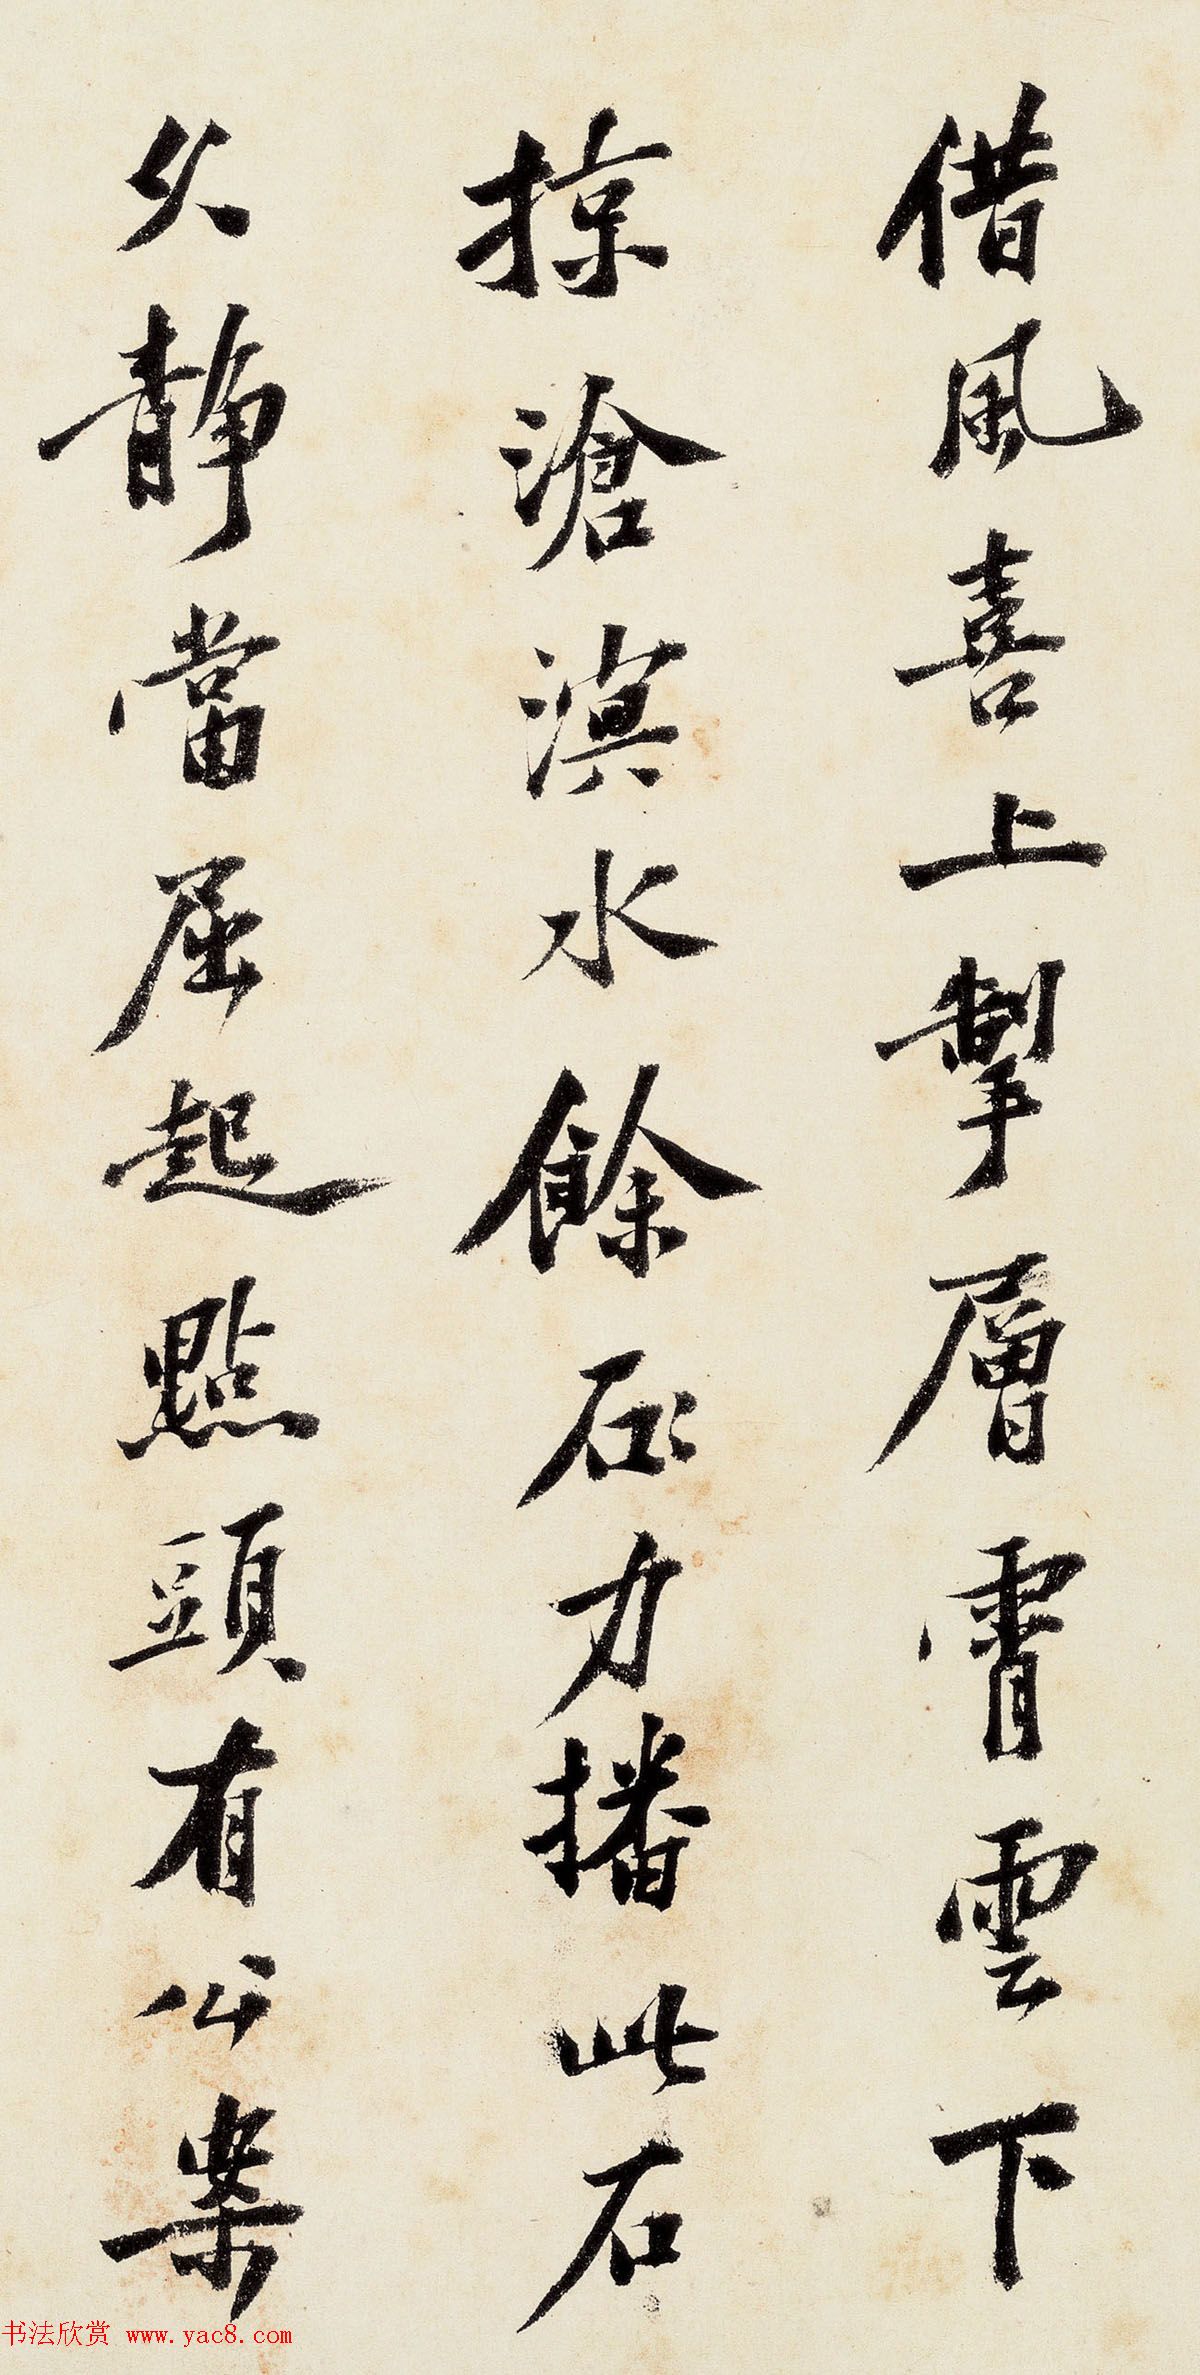 借風喜上掣層霄雲下
掠滄溟水餘石力播此石
久靜當屈起點頭有公案
书法欣赏 www.yac8.com